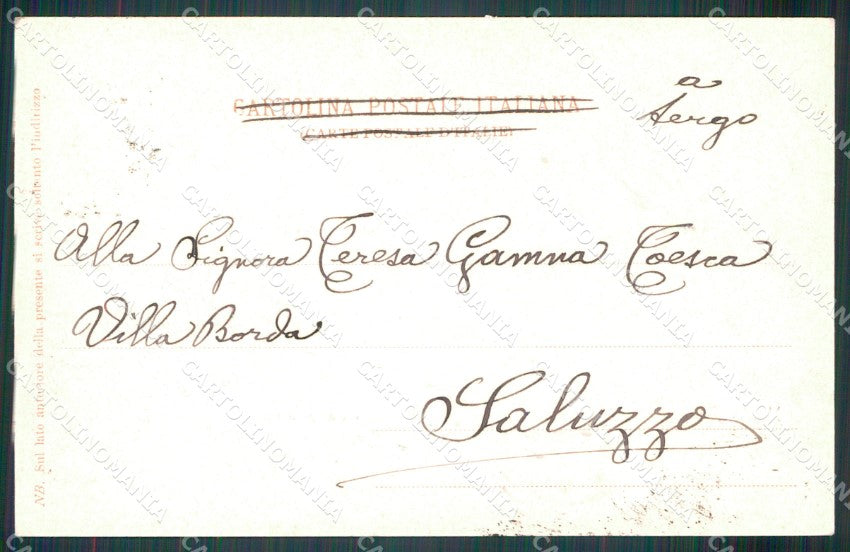 CARTOLINA POSTALE ITALIANA
(CARTE POSTALE D'ITALIE)
a
tergo
Alla Signora Teresa Gamna Toesca
Villa Borda
Saluzzo
NB. Sul lato anteriore della presente si scrive soltanto l'indirizzo
CARTOLINOMANIA